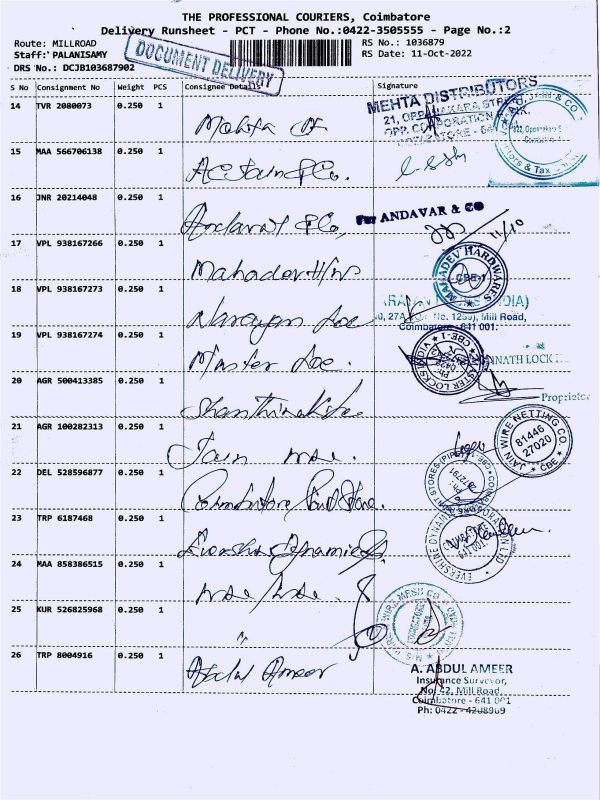 THE PROFESSIONAL COURIERS, Coimbatore
Delivery Runsheet - PCT - Phone No.:0422-3505555 - Page No.:2
Route: MILLROAD
RS No.: 1036879
Staff: PALANISAMY
RS Date: 11-Oct-2022
DRS No.: DCJB103687902
DOCUMENT DELIVERY
S No Consignment No Weight PCS Consignee Details Signature
14 TVR 2080073 0.250 1
MEHTA DISTRIBUTORS
15 MAA 566706138 0.250 1 AC Jain & Co.
16 JNR 20214048 0.250 1 Andavar & Co,
For ANDAVAR & CO
11/10
17 VPL 938167266 0.250 1 Mahadev H/W
MAHADEV HARDWARES
CBE-1
18 VPL 938167273 0.250 1 Narayan Loc
27A Mill Road,
Coimbatore - 641 001.
19 VPL 938167274 0.250 1 Master Loc.
MASTER LOCKS INDIA
CBE-1
20 AGR 500413385 0.250 1
NATH LOCK
Proprietor
21 AGR 100282313 0.250 1 Jain
JAIN WIRE NETTING CO.
81446
27020
CBE
22 DEL 528596877 0.250 1 Coimbatore Paint Store.
23 TRP 6187468 0.250 1 Evershine Dynamic
EVERSHINE DYNAMIC CORPORATION
24 MAA 858386515 0.250 1
25 KUR 526825968 0.250 1 "
WIRE MESH CO
26 TRP 8004916 0.250 1 Abdul Ameer
A. ABDUL AMEER
Insurance Surveyor,
No. 42, Mill Road,
Coimbatore - 641 001
Ph: 0422 - 4208969